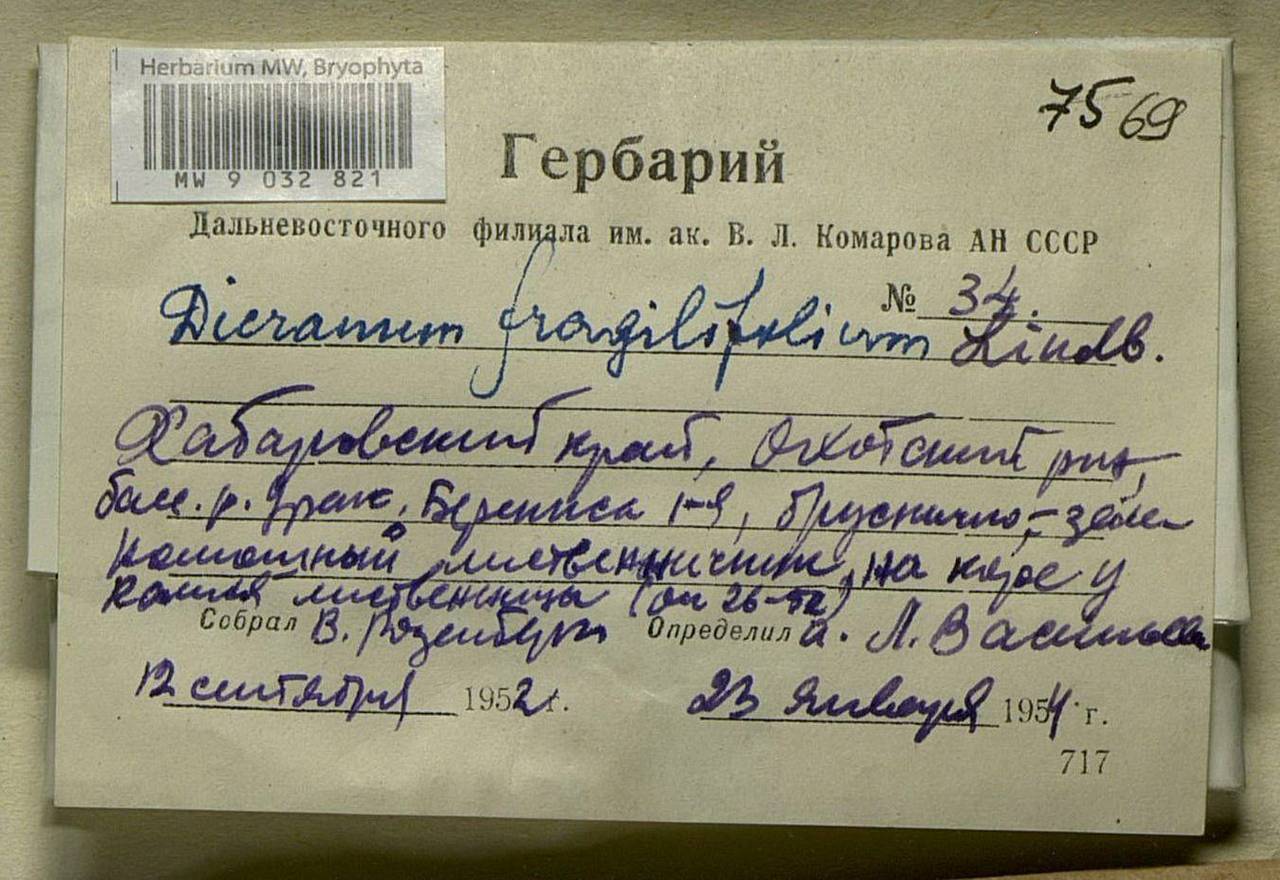 Herbarium MW, Bryophyta
MW 9 032 821
7569
Гербарий
Дальневосточного филиала им. ак. В. Л. Комарова АН СССР
№ 34.
Dicranum fragilifolium Lindb.
Хабаровский край, Охотский
басс. р. Урак, 1-я, бруснично-зелено
мошный лиственничник, на коре у
комля лиственницы
Собрал В. Розенберг Определил А. Л. Васильева
12 сентября 1952 г. 23 января 1954 г.
717